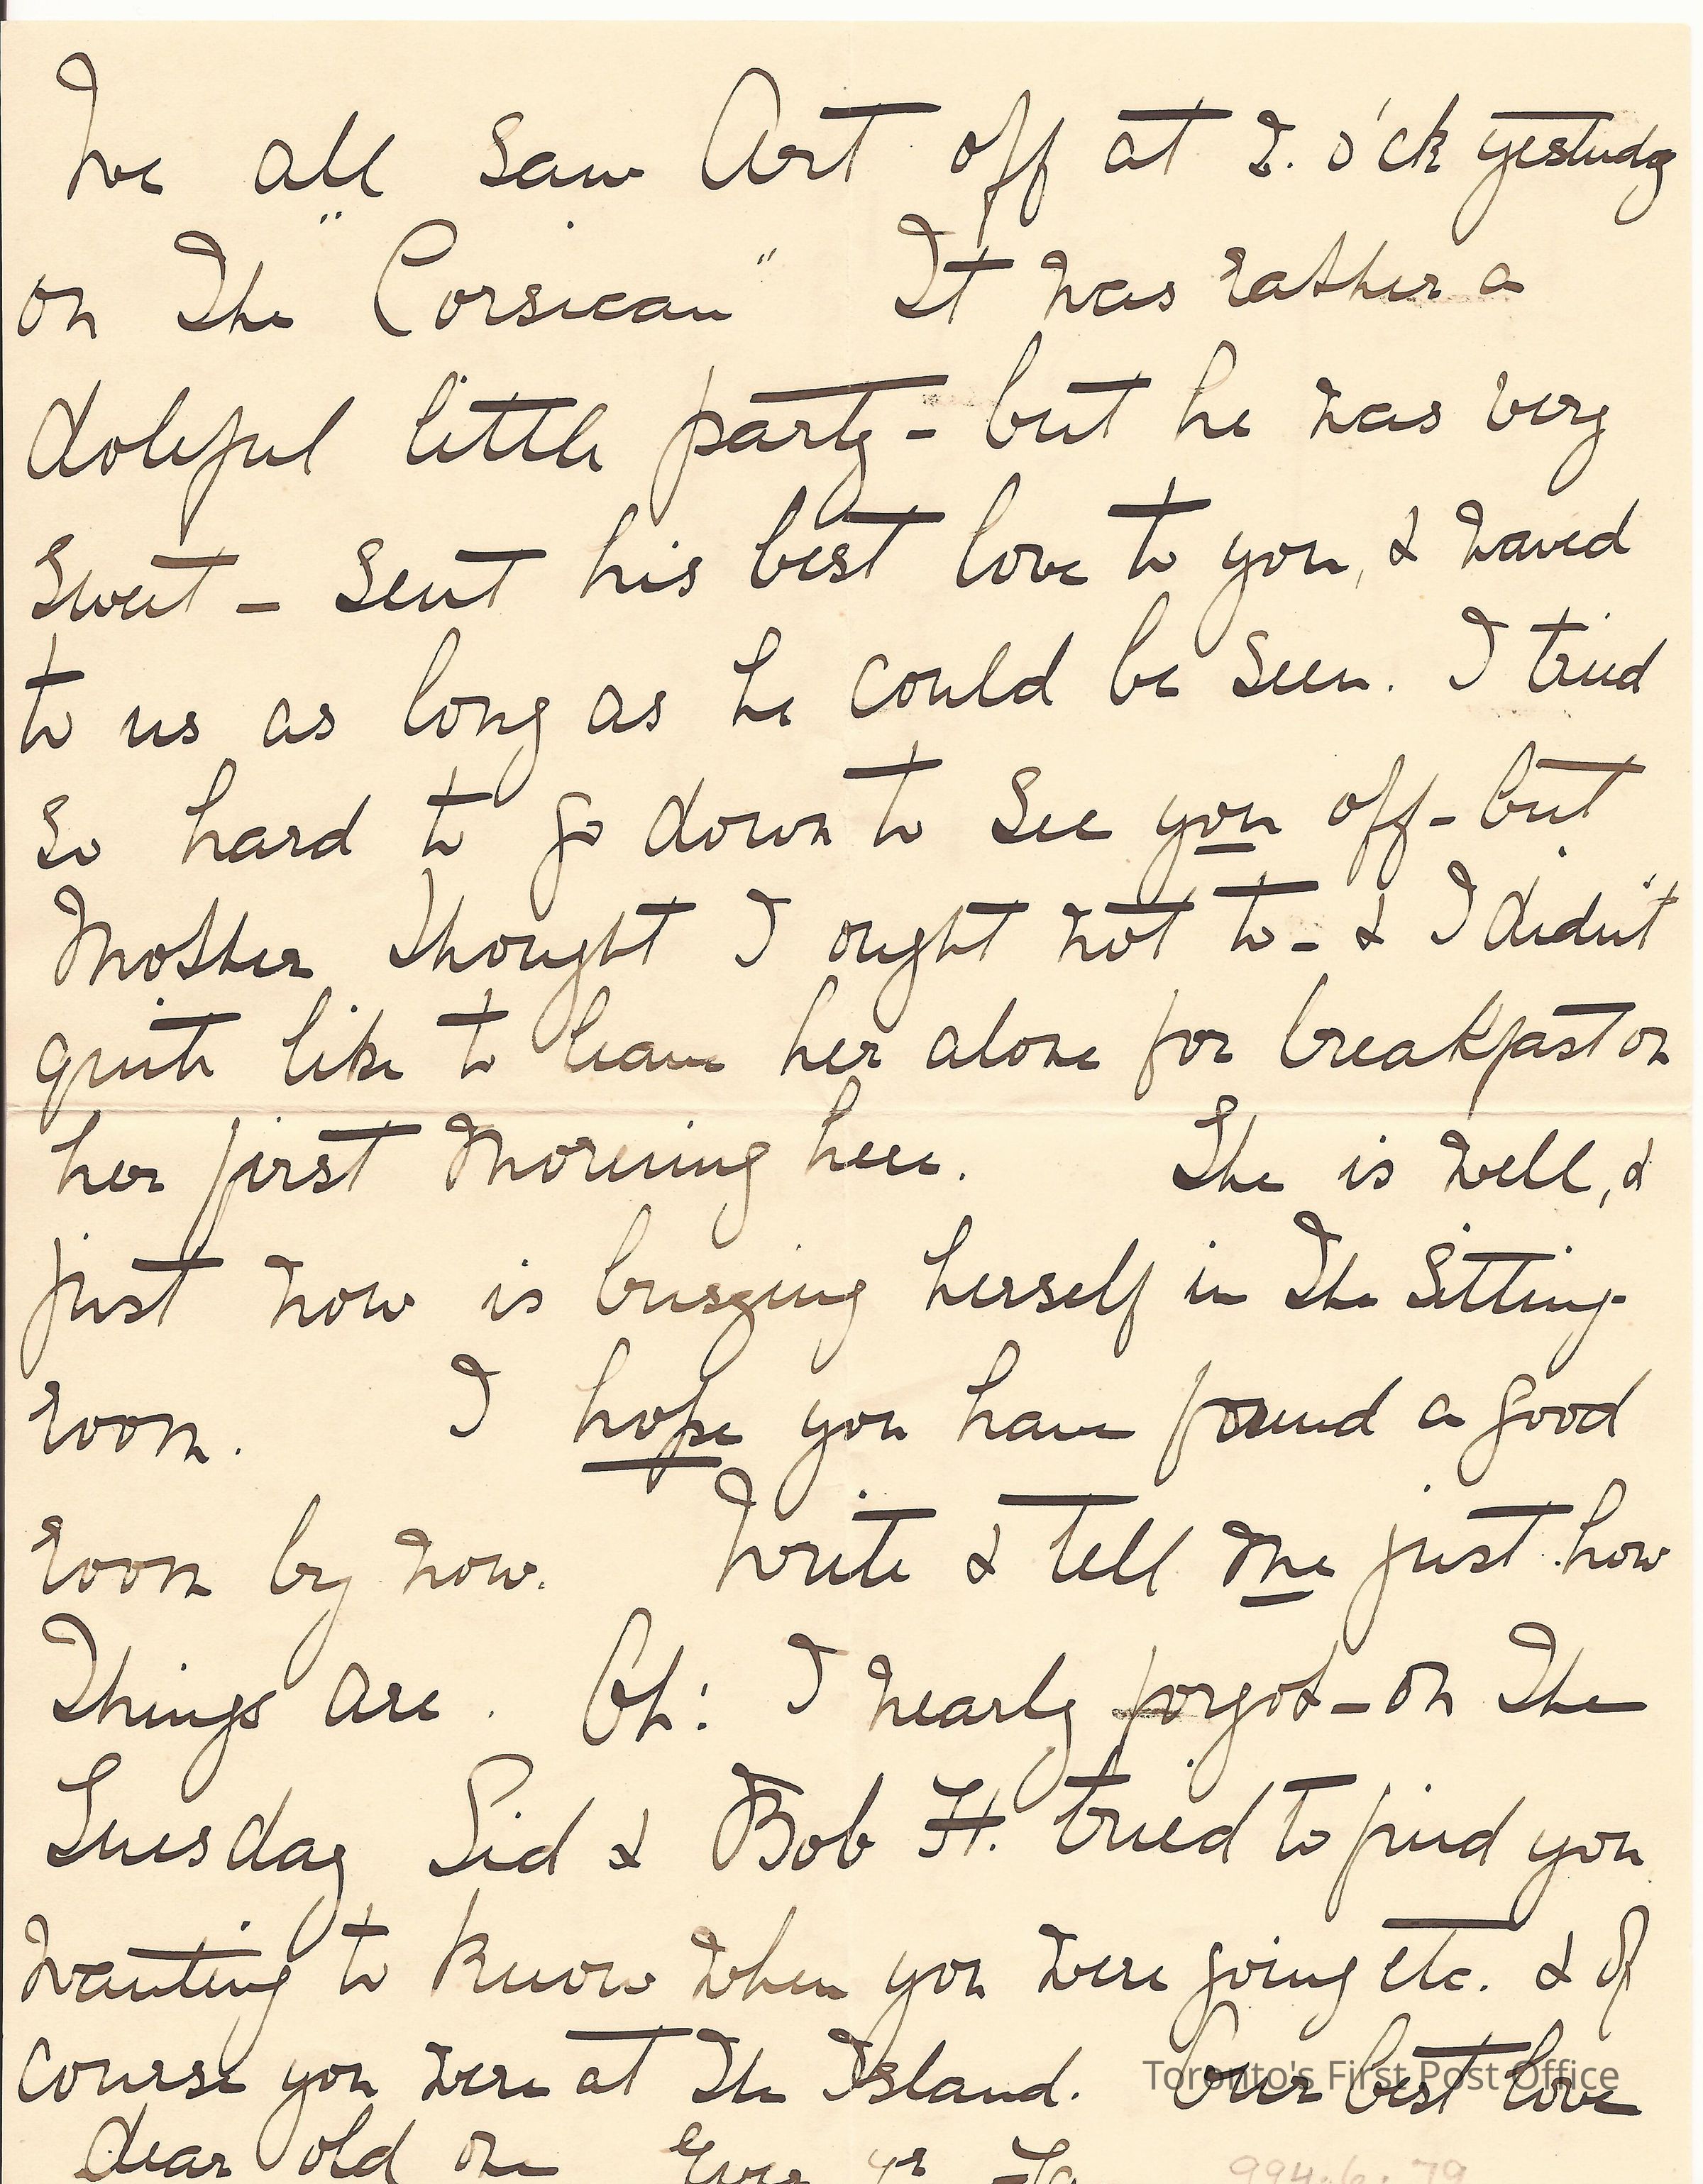 We all saw Art off at 2. o'ck yesterday
on the "Corsican" It was rather a
doleful little party - but he was very
sweet - sent his best love to you, & waved
to us as long as he could be seen. I tried
so hard to go down to see you off - but
Mother thought I ought not to - & I didn't
quite like to leave her alone for breakfast on
her first morning here. She is well, &
just now is buszing herself in the sitting-
room. I hope you have found a good
room by now. Write & tell me just how
things are. Oh! I nearly forgot - on the
Tuesday Sid & Bob H. tried to find you
wanting to know when you were going etc. & of
course you were at the Island. Our best love
dear old one Ever yr
Toronto's First Post Office
994.6.79